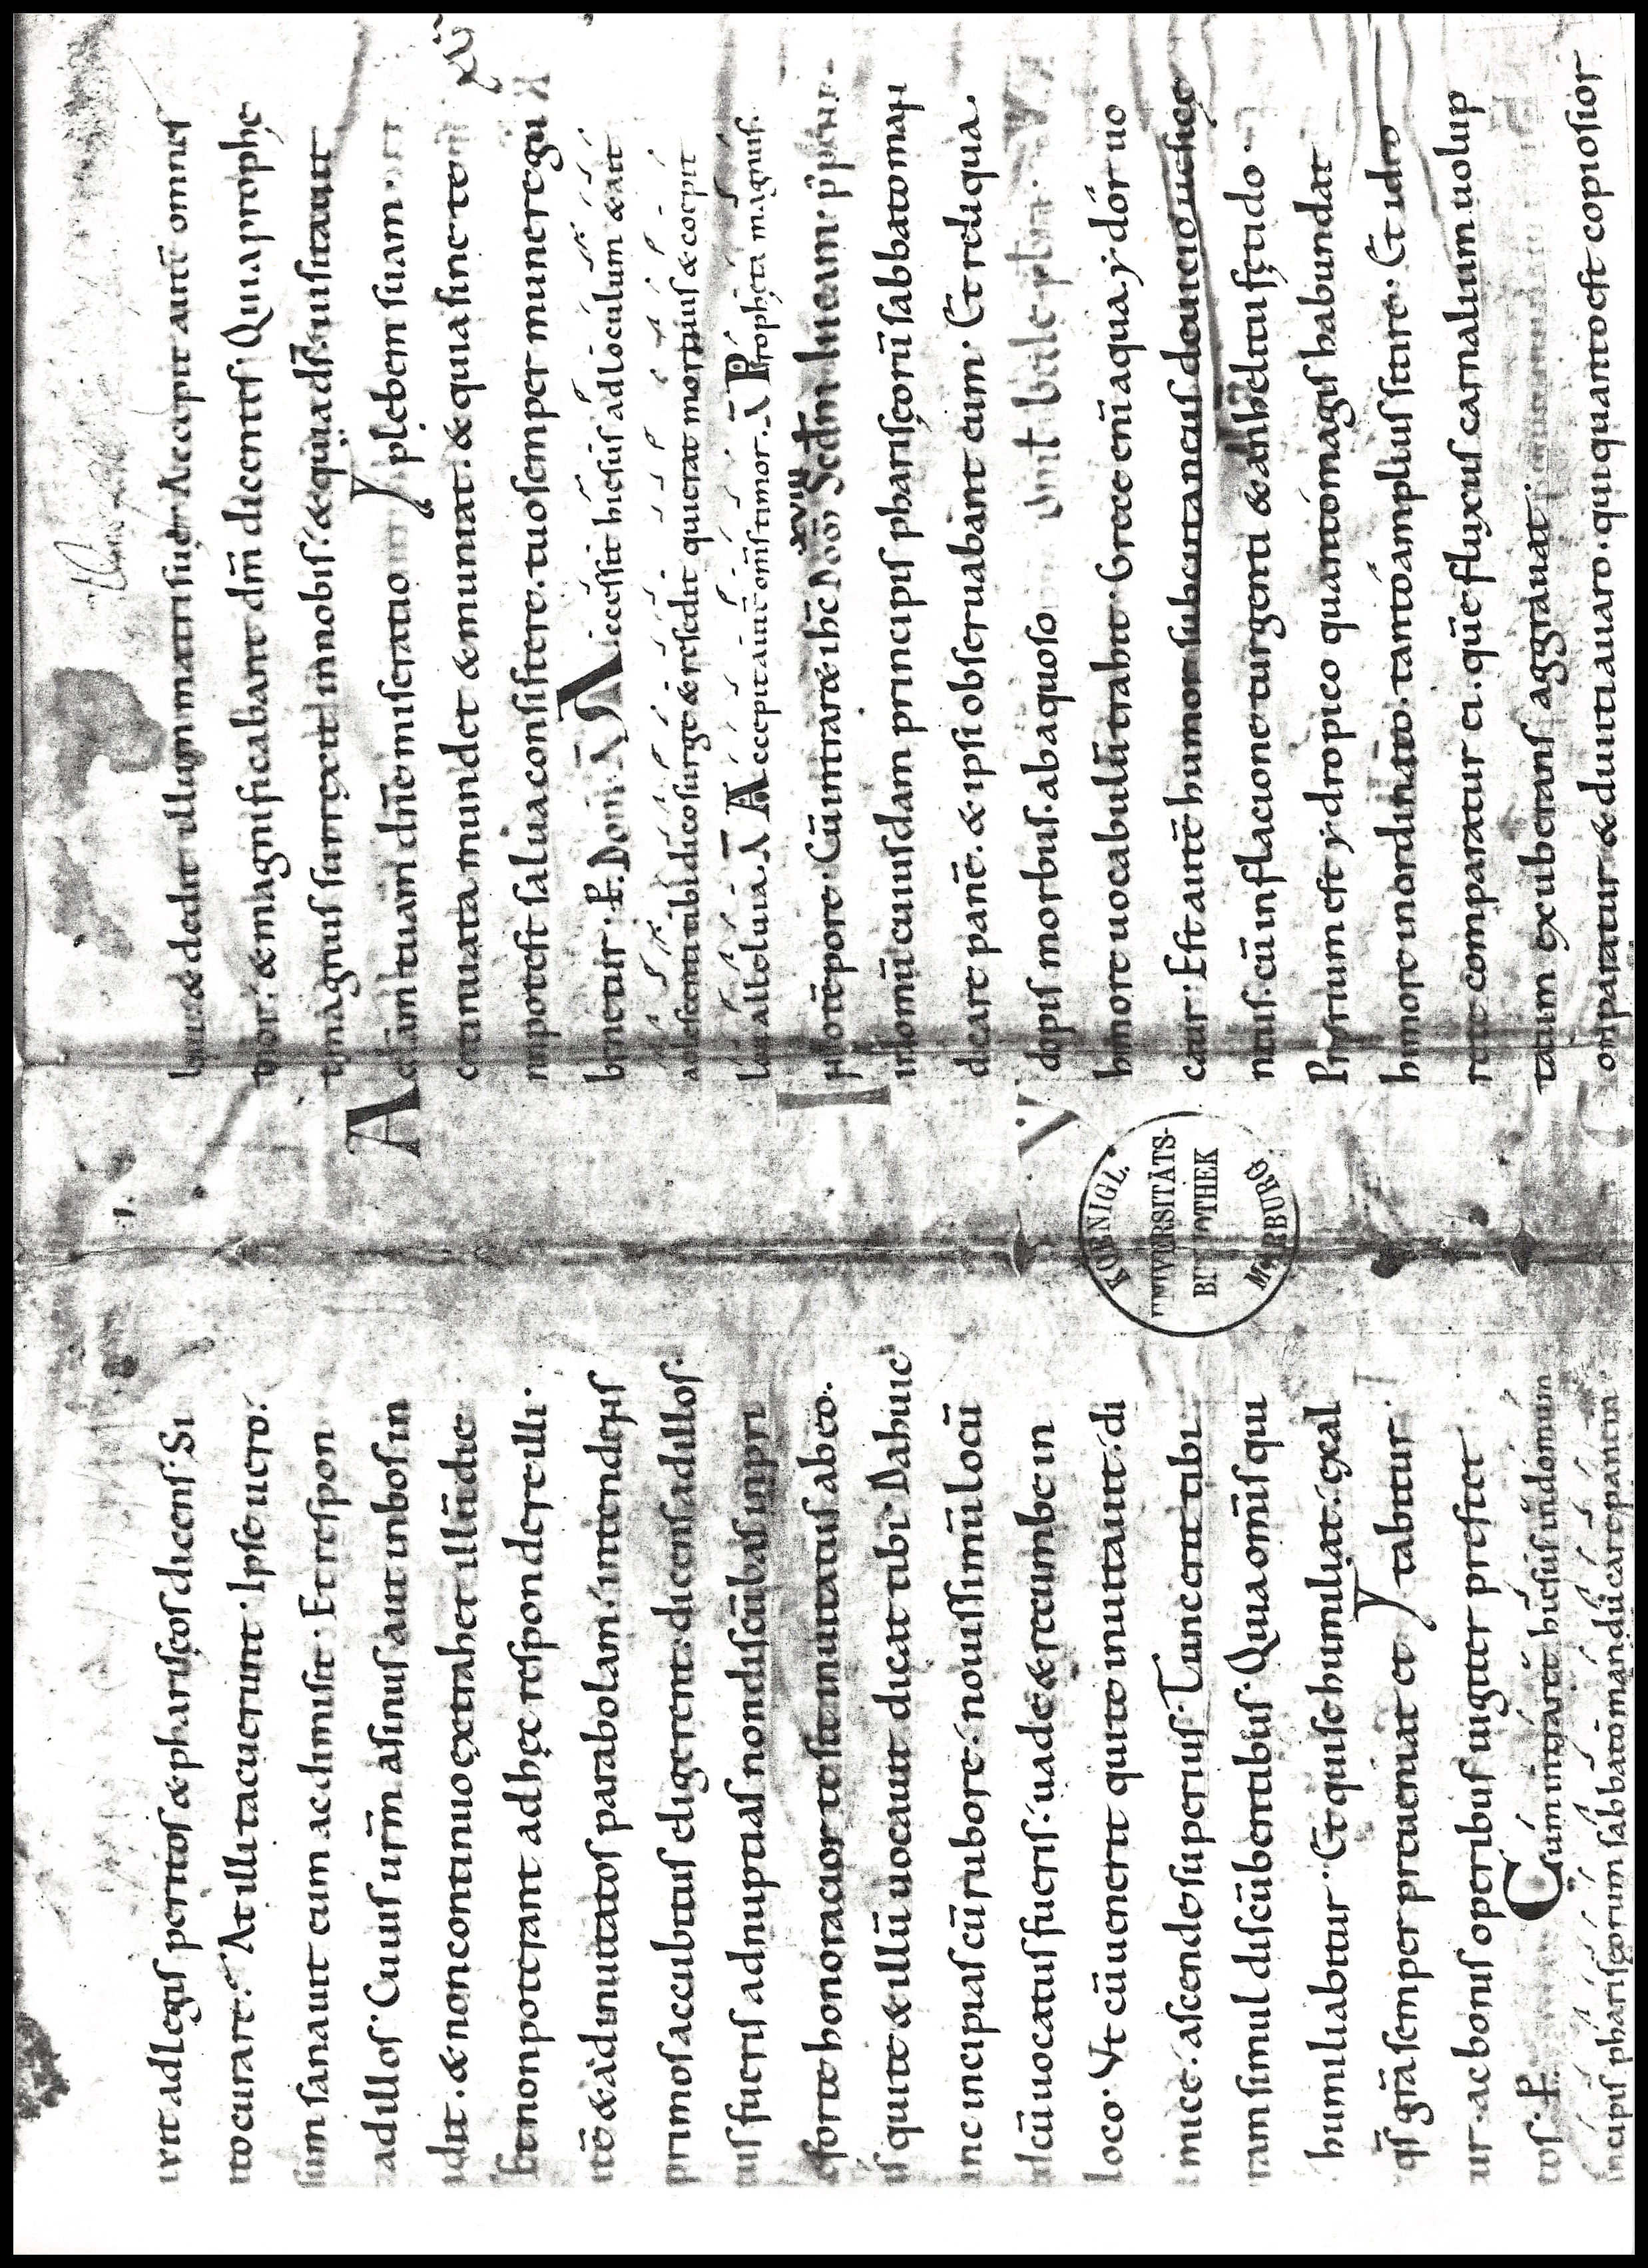 ad legis peritos & phariseos dicens. Si
curare. At illi tacuerunt. Ipse uero
sum sanauit eum ac dimisit. Et respon
ad illos. Cuius urm̄ asinus aut in bos in
dit. & non continuo extrahet illū die
Et non poterant ad hęc respondere illi.
& ad inuitatos parabolam. intendens
primos accubitus eligerent. dicens ad illos.
fueris ad nuptias non discūbas in pri
forte honoracior te sit inuitatus ab eo.
qui te & illū uocauit dicat tibi. Da huic
incipias cū rubore. nouissimū locū
cū uocatus fueris. uade & recumbe in
loco. Vt cū uenerit qui te inuitauit. di
mice. ascende superius. Tunc erit tibi
ram simul discūbentibus. Quia omīs qui
humiliabitur. Et qui se humiliat. exal
tabitur.
qs̄ grā semper preueniat et
ur. ac bonis operibus iugiter prestet
tos. P. Cum intraret hiesus in domum
incipis phariseorum sabbato manducare panem
loqui & dedit illum matri suę. Accepit autē omnes
timor. & magnificabant dm̄ dicentes. Quia prophę
magnus surrexit in nobis. & quia ds̄ uisitauit
plebem suam.
Aclām tuam dn̄e miseratio
continuata mundet & muniat. & quia sine te n
potest salua consistere. tuo semper munere gu
bernetur. P. Dom̄ Ā Accessit hiesus ad loculum & ait
adolescenti tibi dico surge & resedit qui erat mortuus & coepit
loqui alleluia. Ā Accepit autē om̄s timor. Ā Propheta magnus.
xviii
In illo tēpore. Cū intraret ihc̄ Scdm̄ lucam
in domū cuiusdam principis phariseorū sabbato man
ducare panē. & ipsi obseruabant eum. Et red qua.
ydropis morbus. ab aquoso
humore uocabulū trahit. Grece enī aqua ydor uo
catur. Est autē humor subcutaneus de uicio uesicę
natus. cū inflacione turgenti & anhelitu fetido.
Proprium est ydropico quanto magis habundat
humore inordinato. tanto amplius sitire. Et ideo
recte comparatur ei. quē fluxus carnalium uolup
tatum exuberans aggrauat.
omparatur & diuiti auaro. qui quanto est copiosior
KOENIGL.
UNIVERSITÄTS-
BIBLIOTHEK
MARBURG